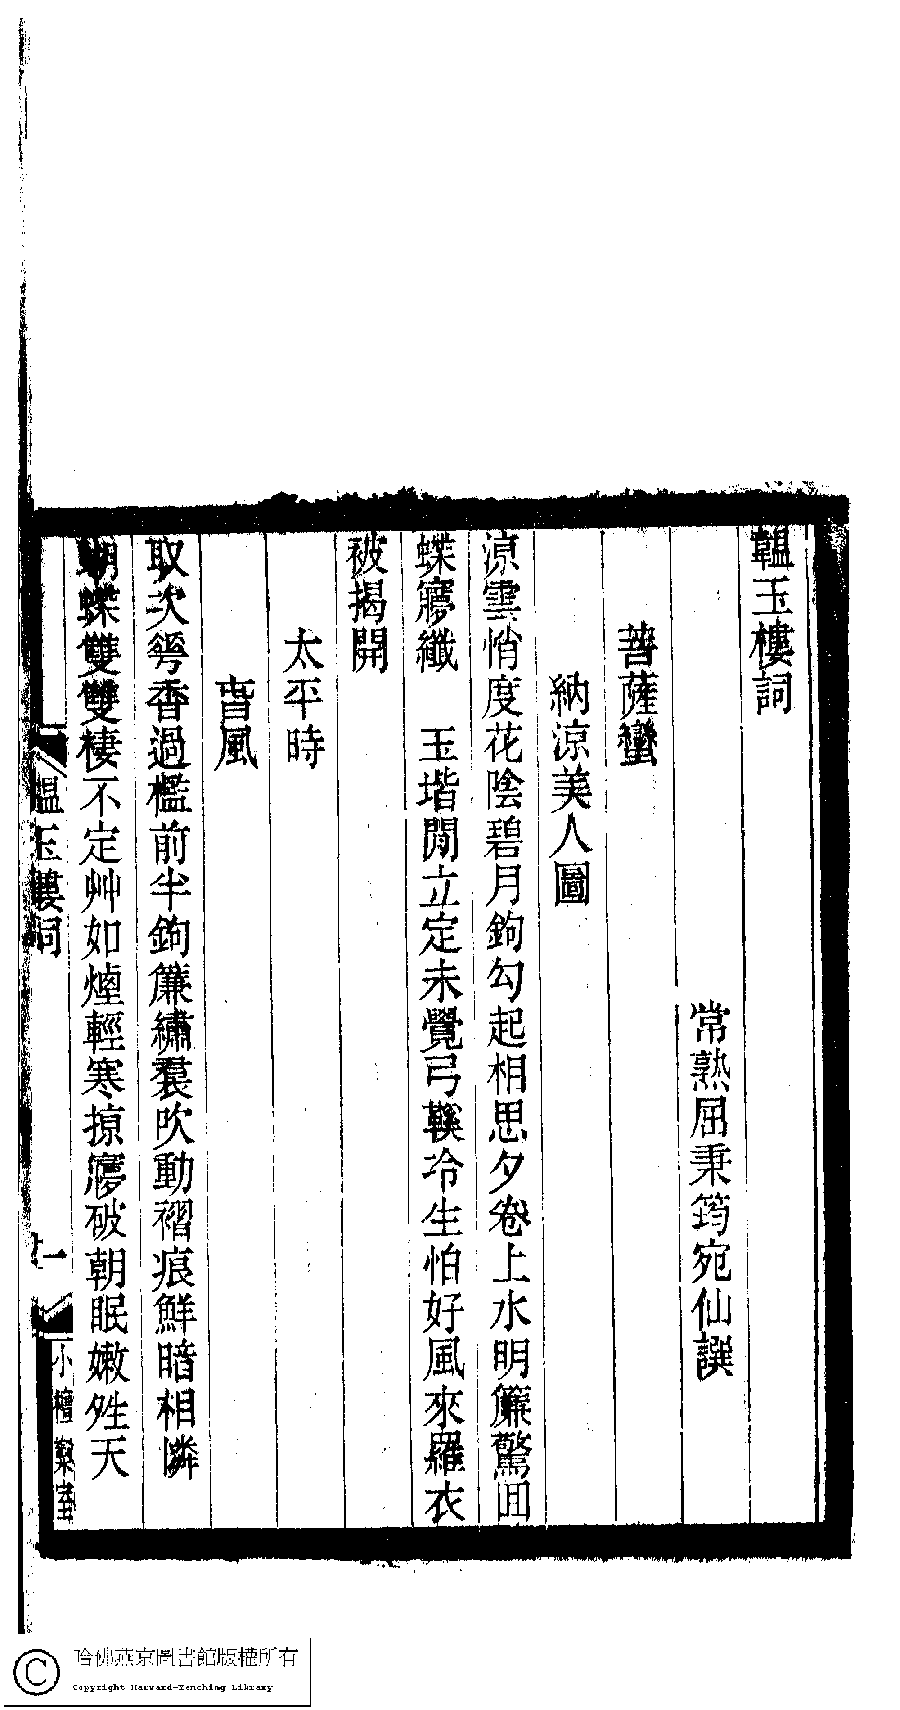 韞玉樓詞
常熟屈秉筠宛仙譔
菩薩蠻
納涼美人圖
涼雲悄度花陰碧月鉤勾起相思夕卷上水明簾驚回
蝶㝱纖　玉堦閒立定未覺弓鞵冷生怕好風來羅衣
被揭開
太平時
旾風
取次䓇香過檻前半鉤簾繡裠吹動褶痕鮮暗相憐
蝴蝶雙雙棲不定艸如煙輕寒掠㝱破朝眠嫩姓天
韞玉樓詞
一
小檀欒室
哈佛燕京圖書館版權所有
Copyright Harvard-Yenching Library